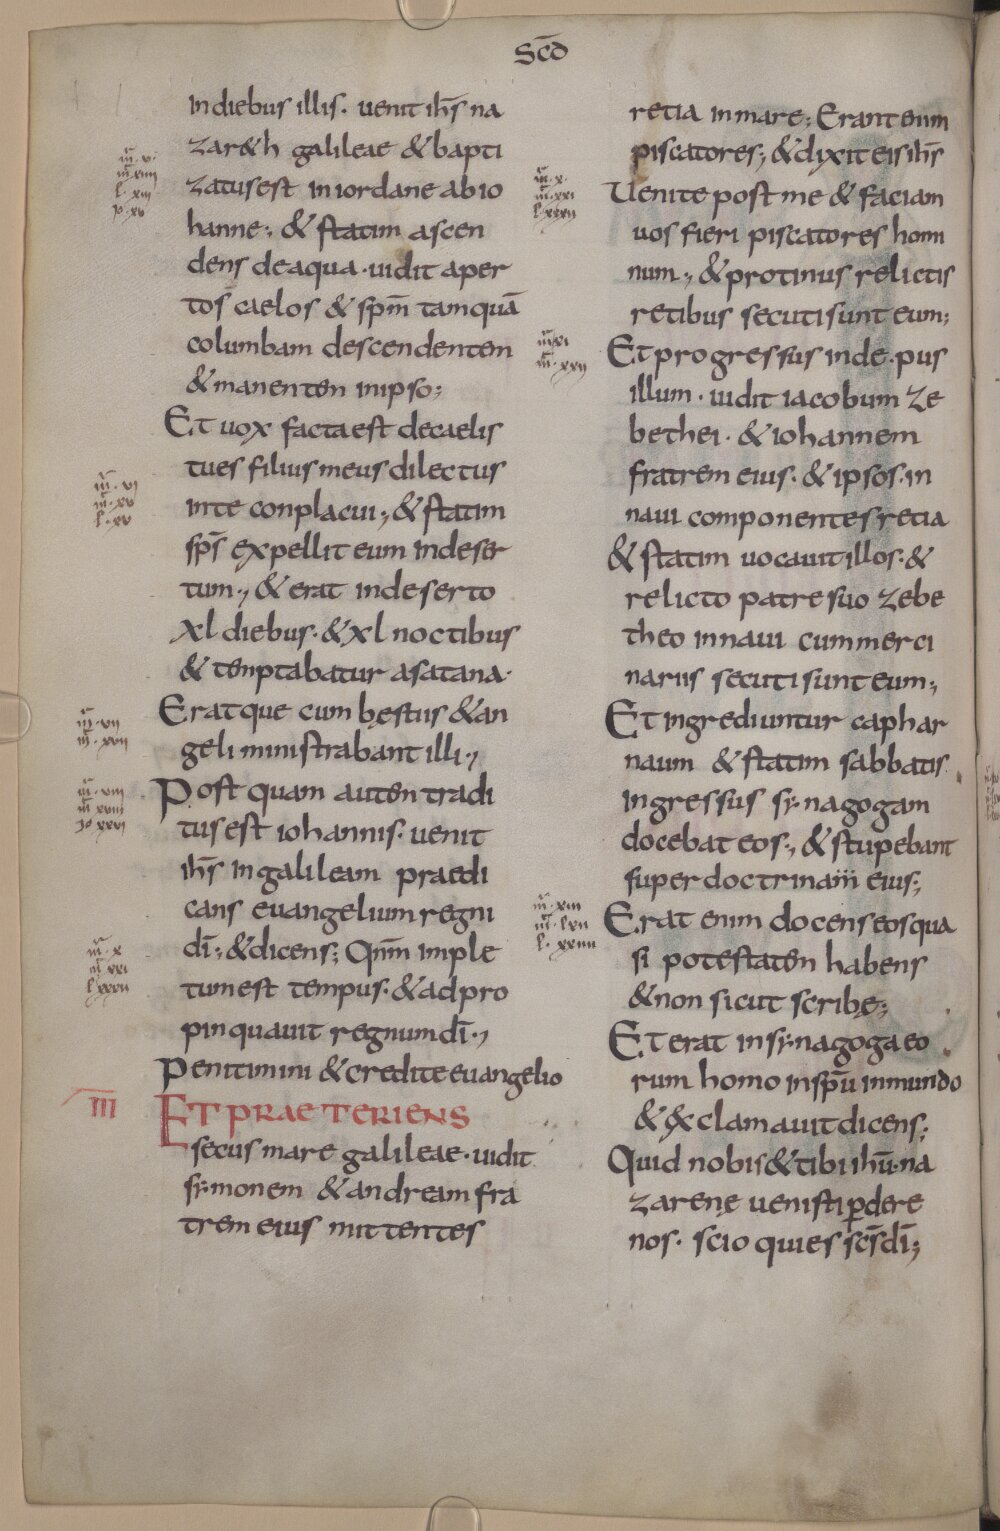 scd̄
in diebus illis. uenit ih̄s na
zar&h galileae & bapti
m̄.v.
m̄.xiiii
l.xiii
io.xv
zatus est in iordane ab io
hanne; & statim ascen
dens de aqua. uidit aper
tos caelos & sp̄m tamquā
columbam descendentem
& manentem in ipso;
Et uox facta est de caelis
tu es filius meus dilectus
m̄.vi
m̄.xv
l.xv
in te conplacui; & statim
sp̄s expellit eum in deser
tum; & erat in deserto
xl diebus. & xl noctibus
& temptabatur a satana.
m̄.vii
m̄.xvii
Eratque cum bęstiis & an
geli ministrabant illi;
m̄.viii
m̄.xviii
io.xxvi
Post quam autem tradi
tus est iohannis. uenit
ih̄s in galileam praedi
cans euangelium regni
m̄.x
m̄.xxi
l.xxxii
dī; & dicens; Qnm̄ imple
tum est tempus. & adpro
pinquauit regnum dī;
Penitimini & credite euangelio
III
ET PRAETERIENS
secus mare galileae. uidit
symonem & andream fra
trem eius mittentes
retia in mare; Erant enim
piscatores; & dixit eis ih̄s
m̄.x.
m̄.xxi
l.xxxii
Uenite post me & faciam
uos fieri piscatores homi
num; & protinus relictis
retibus secuti sunt eum;
m̄.xi
m̄.xxii
Et progressus inde. pus
illum. uidit iacobum ze
bethei. & iohannem
fratrem eius. & ipsos. in
naui componentes retia
& statim uocauit illos. &
relicto patre suo zebe
theo in naui cum merci
nariis secuti sunt eum;
Et ingrediuntur caphar
naum & statim sabbatis
ingressus synagogam
docebat eos; & stupebant
super doctrinam eius;
m̄.xiii
m̄.lxii
l.xxiiii
Erat enim docens eos qua
si potestatem habens
& non sicut scribę;
Et erat in synagoga eo
rum homo in sp̄u inmundo
& exclamauit dicens;
Quid nobis & tibi ih̄u. na
zarenę uenisti ꝑdere
nos. scio qui es sc̄s dī;